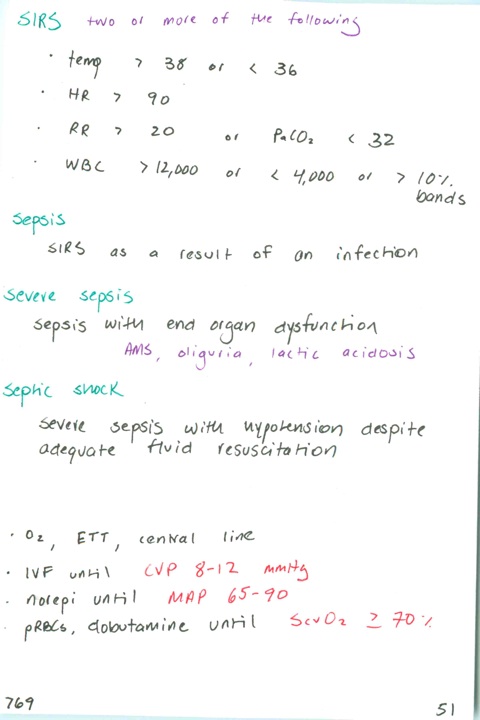 SIRS two or more of the following
· temp > 38 or < 36
· HR > 90
· RR > 20 or PaCO₂ < 32
· WBC > 12,000 or < 4,000 or > 10% bands
sepsis
SIRS as a result of an infection
severe sepsis
sepsis with end organ dysfunction
AMS, oliguria, lactic acidosis
septic shock
severe sepsis with hypotension despite
adequate fluid resuscitation
· O₂, ETT, central line
· IVF until CVP 8-12 mmHg
· norepi until MAP 65-90
· pRBCs, dobutamine until ScvO₂ ≥ 70%
769
51